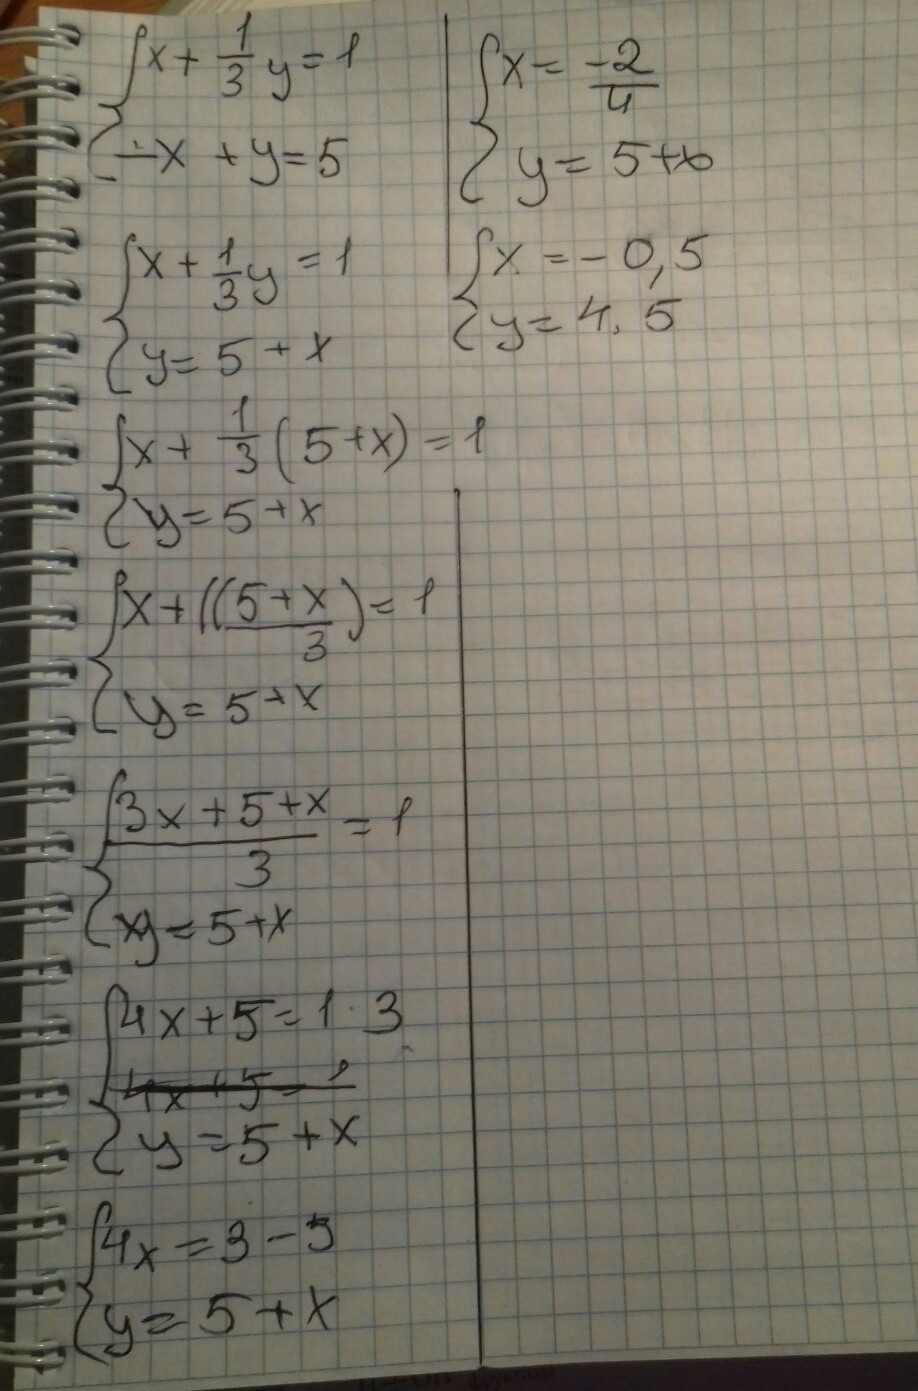 x + 1/3 y = 1
-x + y = 5
x + 1/3 y = 1
y = 5 + x
x + 1/3 (5+x) = 1
y = 5 + x
x + ((5+x/3) = 1
y = 5 + x
3x + 5 + x / 3 = 1
y = 5 + x
4x + 5 = 1 · 3
4x + 5 = 1
y = 5 + x
4x = 3 - 5
y = 5 + x
x = -2/4
y = 5 + x
x = - 0,5
y = 4.5